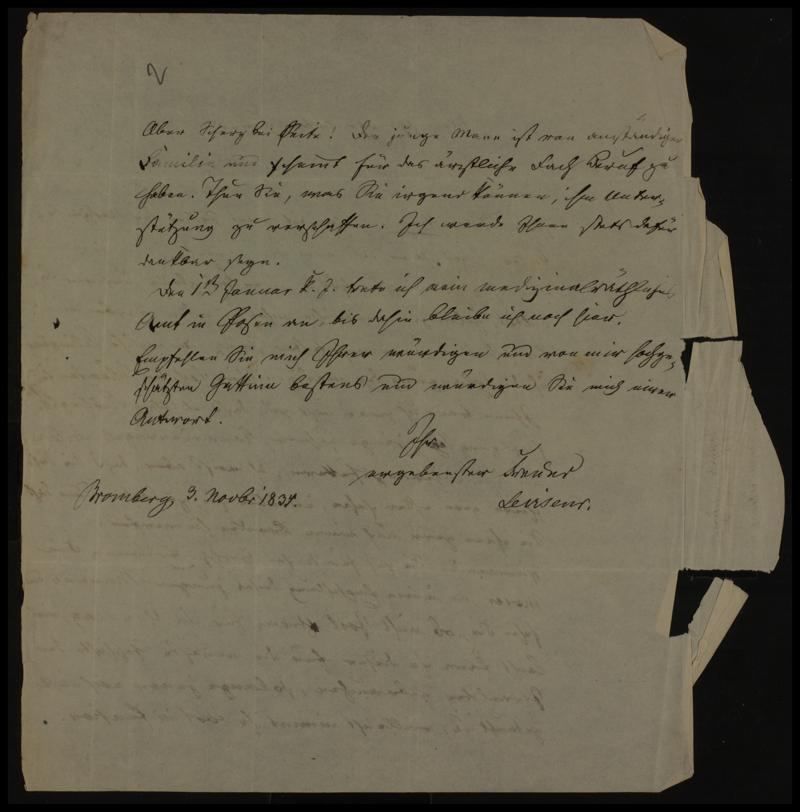 2
Aber Scherz bei Seite! Der junge Mann ist von anständiger
Familie und scheint für das ärztliche Fach Beruf zu
haben. Thun Sie, was Sie irgend können, ihm Unter-
stützung zu verschaffen. Ich werde Ihnen stets dafür
dankbar seyn.
Den 1sten Januar k. J. trete ich mein medizinalräthliches
Amt in Posen an, bis dahin bleibe ich noch hier.
Empfehlen Sie mich Ihrer würdigen und von mir hochge-
schätzten Gattinn bestens und würdigen Sie mich einer
Antwort.
Ihr
ergebenster Freund
Bromberg, 3. Novbr